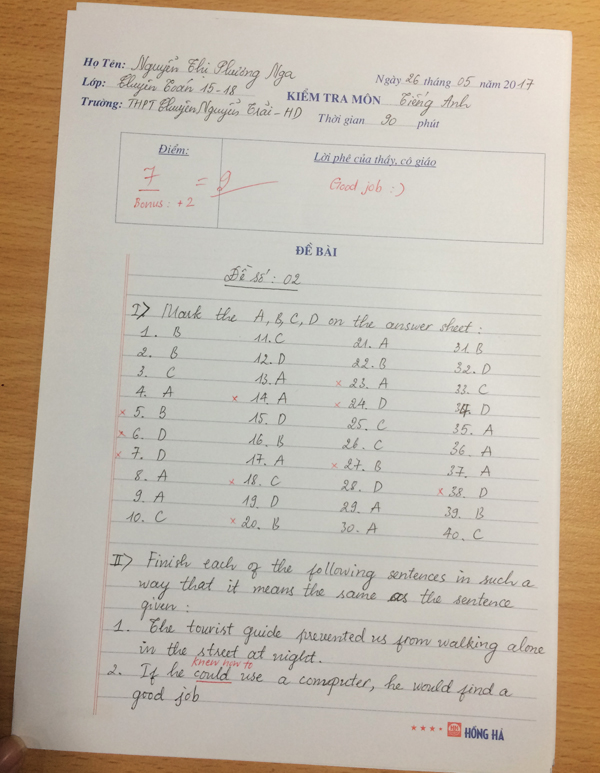 Họ Tên: Nguyễn Thị Phương Nga
Ngày 26 tháng 05 năm 2017
Lớp: Chuyên Toán 15-18
KIỂM TRA MÔN Tiếng Anh
Trường: THPT Chuyên Nguyễn Trãi - HD
Thời gian 90 phút
Điểm:
Lời phê của thầy, cô giáo
7 = 9
Bonus: +2
Good job :)
ĐỀ BÀI
Đề số: 02
I> Mark the A, B, C, D on the answer sheet:
1. B 11. C 21. A 31. B
2. B 12. D 22. B 32. D
3. C 13. A × 23. A 33. C
4. A × 14. A × 24. D 34. D
× 5. B 15. D 25. C 35. A
× 6. D 16. B 26. C 36. A
× 7. D 17. A × 27. B 37. A
8. A × 18. C 28. D × 38. D
9. A 19. D 29. A 39. B
10. C × 20. B 30. A 40. C
II> Finish each of the following sentences in such a
way that it means the same as the sentence
given:
1. The tourist guide prevented us from walking alone
in the street at night.
knew how to
2. If he could use a computer, he would find a
good job
HỒNG HÀ